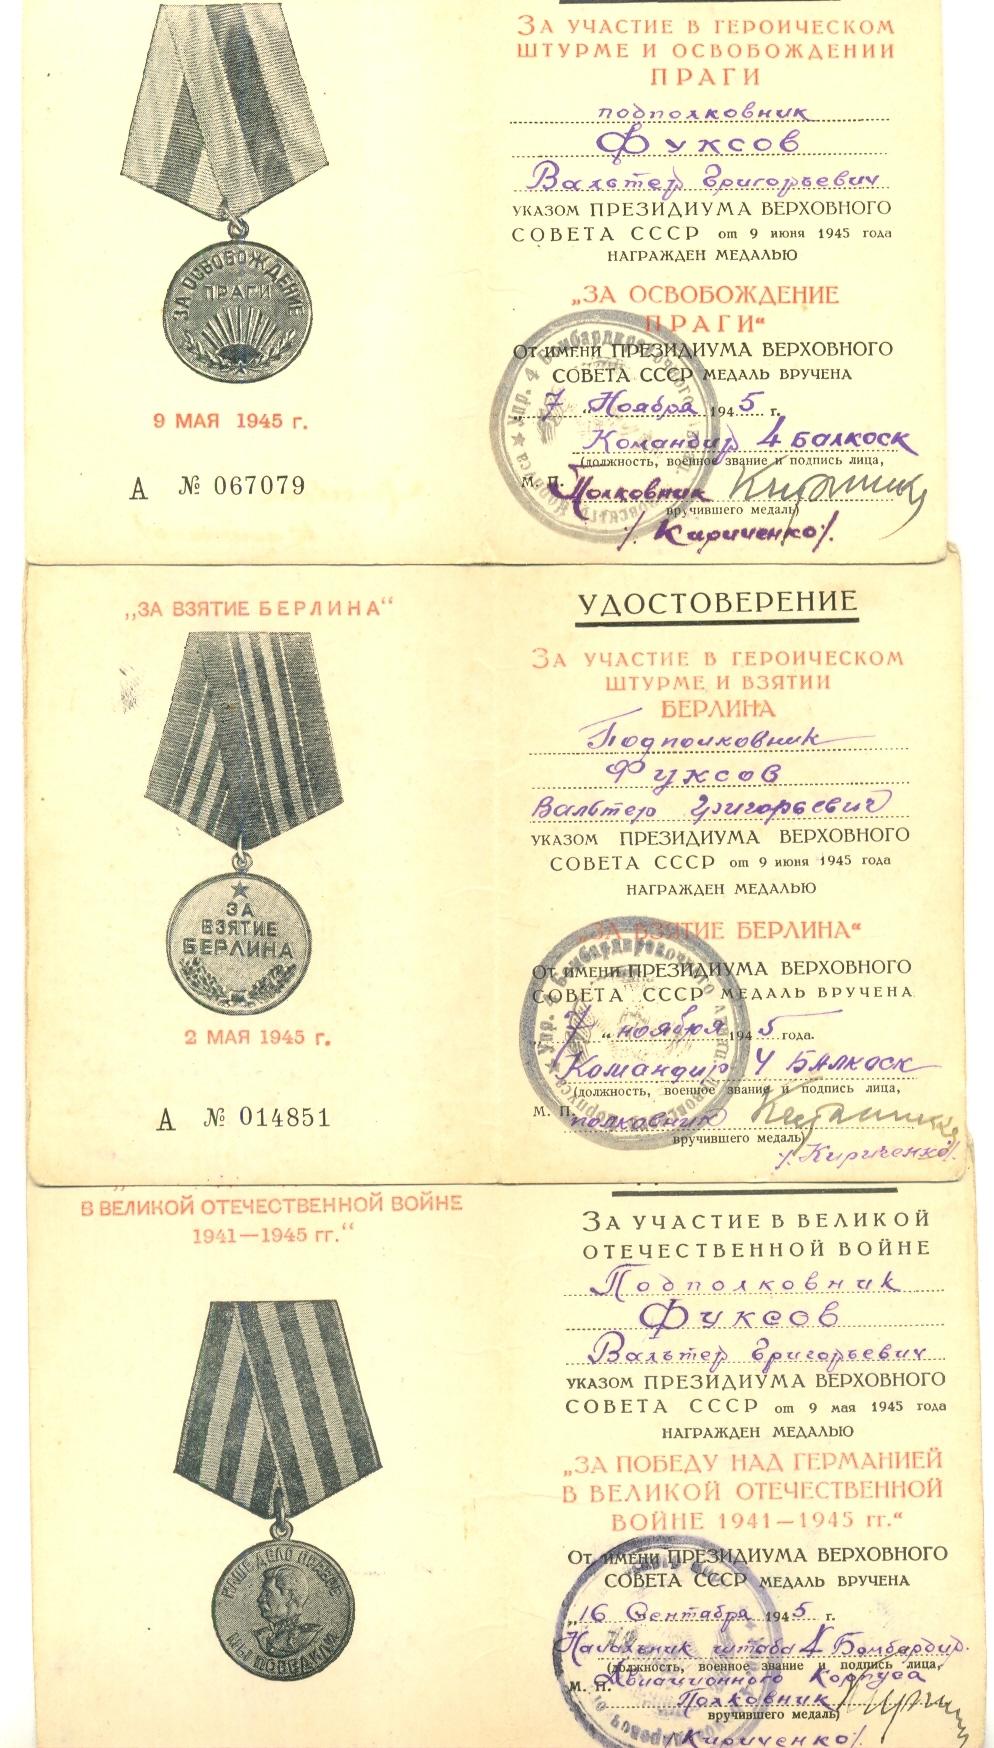 ЗА УЧАСТИЕ В ГЕРОИЧЕСКОМ
ШТУРМЕ И ОСВОБОЖДЕНИИ
ПРАГИ
подполковник
Фуксов
Вальтер Григорьевич
УКАЗОМ ПРЕЗИДИУМА ВЕРХОВНОГО
СОВЕТА СССР от 9 июня 1945 года
НАГРАЖДЕН МЕДАЛЬЮ
„ЗА ОСВОБОЖДЕНИЕ
ПРАГИ“
От имени ПРЕЗИДИУМА ВЕРХОВНОГО
СОВЕТА СССР МЕДАЛЬ ВРУЧЕНА
„7“ Ноября 1945 г.
Командир 4 БАЛКОСК
(должность, военное звание и подпись лица,
М. П. Полковник
вручившего медаль)
/Кириченко/.
Упр. 4 Бомбардировочного
Корпуса
ЗА ОСВОБОЖДЕНИЕ
ПРАГИ
9 МАЯ 1945 г.
А № 067079
„ЗА ВЗЯТИЕ БЕРЛИНА“
ЗА
ВЗЯТИЕ
БЕРЛИНА
2 МАЯ 1945 г.
А № 014851
УДОСТОВЕРЕНИЕ
ЗА УЧАСТИЕ В ГЕРОИЧЕСКОМ
ШТУРМЕ И ВЗЯТИИ
БЕРЛИНА
Подполковник
Фуксов
Вальтер Григорьевич
УКАЗОМ ПРЕЗИДИУМА ВЕРХОВНОГО
СОВЕТА СССР от 9 июня 1945 года
НАГРАЖДЕН МЕДАЛЬЮ
„ЗА ВЗЯТИЕ БЕРЛИНА“
От имени ПРЕЗИДИУМА ВЕРХОВНОГО
СОВЕТА СССР МЕДАЛЬ ВРУЧЕНА
„7“ ноября 1945 года.
Командир 4 БАЛКОСК
(должность, военное звание и подпись лица,
М. П. полковник
вручившего медаль)
/Кириченко/.
Упр. 4 Бомбардировочного
Корпуса
В ВЕЛИКОЙ ОТЕЧЕСТВЕННОЙ ВОЙНЕ
1941—1945 гг.“
НАШЕ ДЕЛО ПРАВОЕ
МЫ ПОБЕДИЛИ
ЗА УЧАСТИЕ В ВЕЛИКОЙ
ОТЕЧЕСТВЕННОЙ ВОЙНЕ
Подполковник
Фуксов
Вальтер Григорьевич
УКАЗОМ ПРЕЗИДИУМА ВЕРХОВНОГО
СОВЕТА СССР от 9 мая 1945 года
НАГРАЖДЕН МЕДАЛЬЮ
„ЗА ПОБЕДУ НАД ГЕРМАНИЕЙ
В ВЕЛИКОЙ ОТЕЧЕСТВЕННОЙ
ВОЙНЕ 1941—1945 гг.“
От имени ПРЕЗИДИУМА ВЕРХОВНОГО
СОВЕТА СССР МЕДАЛЬ ВРУЧЕНА
„16 Сентября 1945 г.
Начальник штаба 4 Бомбардир.
(должность, военное звание и подпись лица,
Авиационного Корпуса
М. П. Полковник
вручившего медаль)
/Кириченко/.